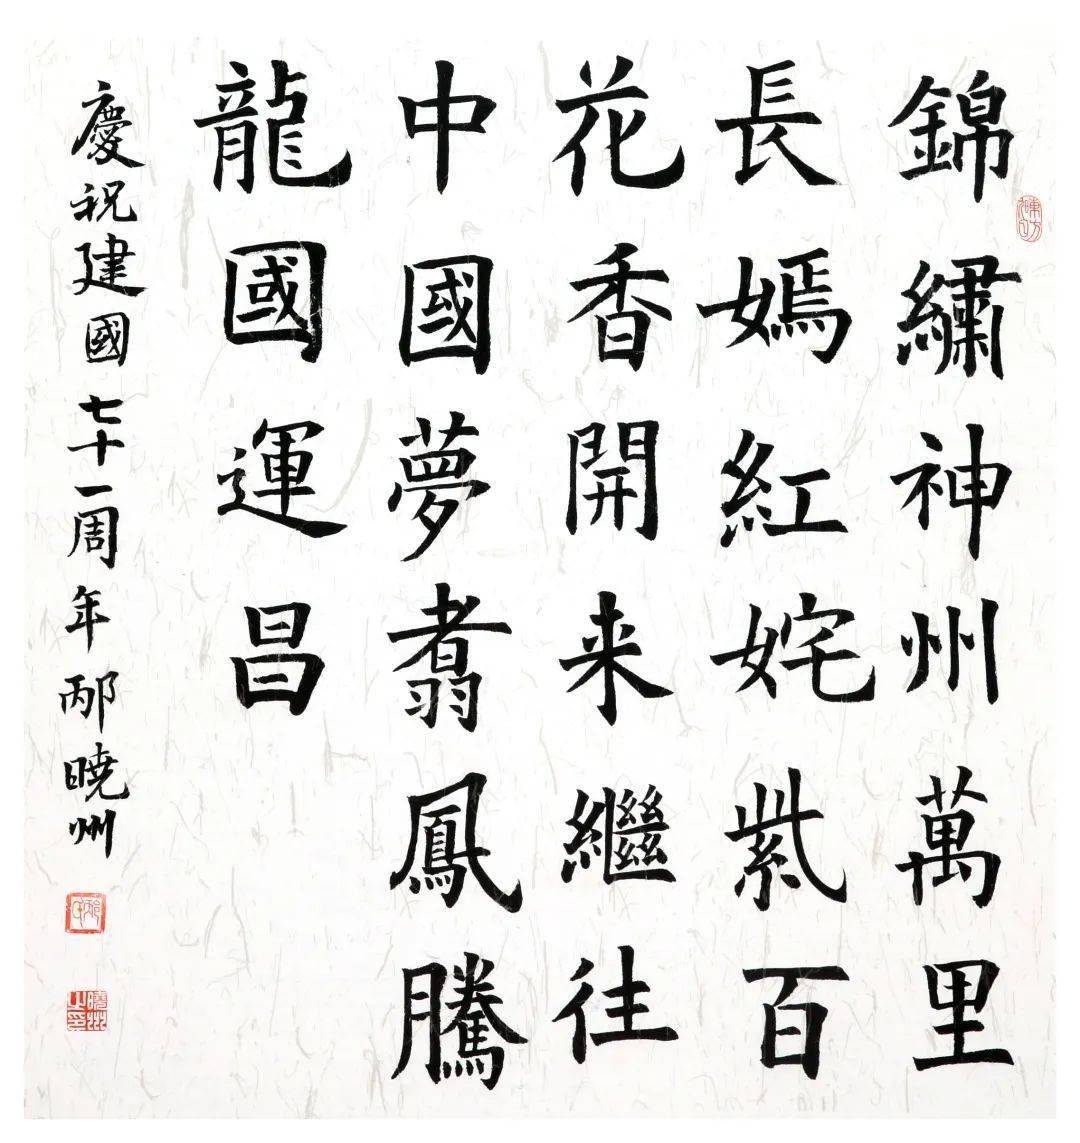 錦繡神州萬里
長嫣紅姹紫百
花香開来繼往
中國夢翥鳳騰
龍國運昌
慶祝建國七十一周年邴暁州
曉州之印